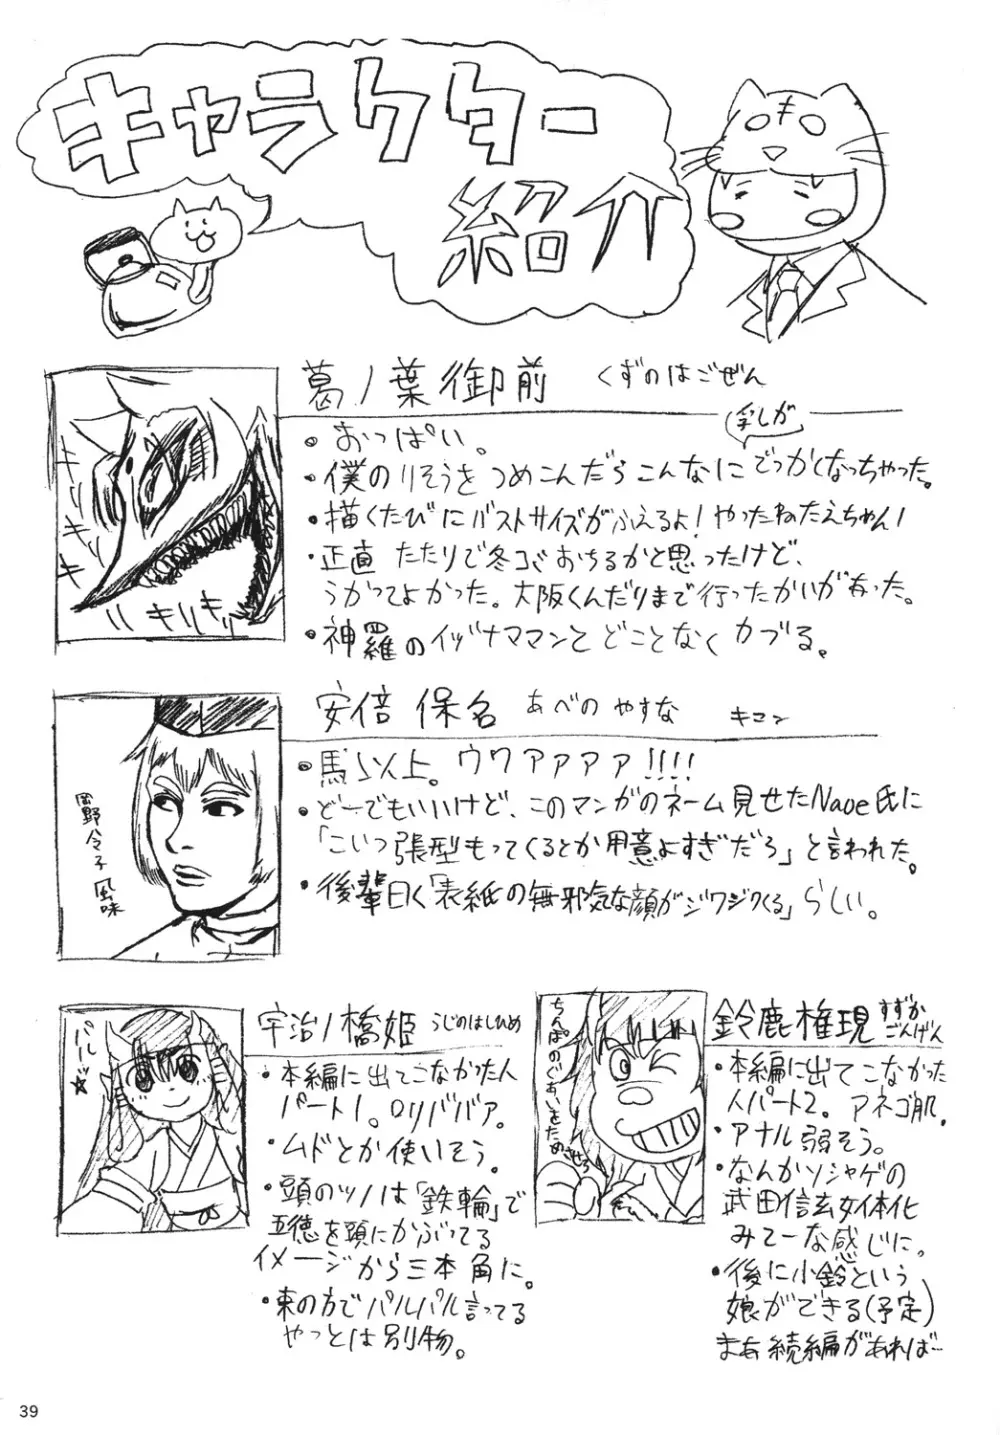 キャラクター
紹介
葛ノ葉御前 くずのはごぜん
・おっぱい。
乳しが
・僕のりそうをつめこんだらこんなにでっかくなっちゃった。
・描くたびにバストサイズがふえるよ!やったねたえちゃん!
・正直 たたりで冬コミおちるかと思ったけど、
うかってよかった。大阪くんだりまで行ったかいがあった。
・神羅のイヅナママンとどことなくカブる。
キィ
キィ
キィ
キリキリ
安倍 保名 あべの やすな キコン
・馬ら以上。ウワァァァァ!!!!
・どーでもいいけど、このマンガのネーム見せたNaoe氏に
「こいつ張型もってくるとか用意よすぎだろ」と言われた。
・後輩曰く「表紙の無邪気な顔がジワジワくる」らしい。
岡野令子風味
宇治ノ橋姫 うじのはしひめ
・本編に出てこなかった人
パート1。ロリババア。
・ムドとか使いそう。
・頭のツノは「鉄輪」で
五徳を頭にかぶってる
イメージから三本角に。
・東の方でパルパル言ってる
やつとは別物。
パルパルッ☆
鈴鹿権現 すずか
ごんげん
・本編に出てこなかった
人パート2。アネゴ肌。
・アナル弱そう。
・なんかソシャゲの
武田信玄女体化
みてーな感じに。
・後に小鈴という
娘ができる(予定)
まあ続編があれば…
39